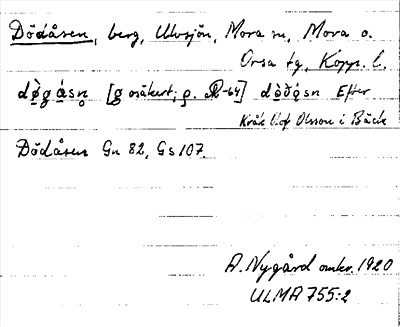 Dödåsen, berg, Ulvsjön, Mora sn, Mora o.
Orsa tg, Kopp. l.
dø̀gásn̥ [g osäkert; ρ. R-64] dòðǫ́sn Efter
Kråk Olof Olsson i Bäck
Dödåsen Gn 82, Gs 107.
A. Nygård omkr. 1920
ULMA 755:2